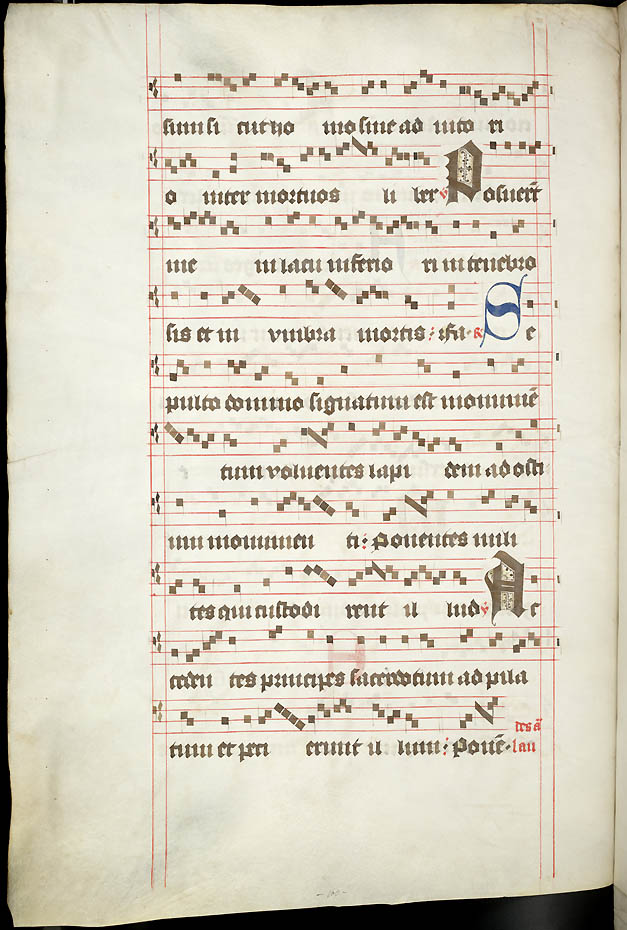 sum si cut ho mo sine ad iuto ri
o inter mortuos li ber ℣ Posuerūt
me in lacu inferio ri in tenebro
sis et in vmbra mortis : Fa ℟ Se
pulto domino signatum est monumē
tum voluentes lapi dem ad osti
um monumen ti : Ponentes mili
tes qui custodi rent il lud ℣ Ac
ceden tes principes sacerdotum ad pila
tum et peti erunt il lum : Ponē lau
des ā